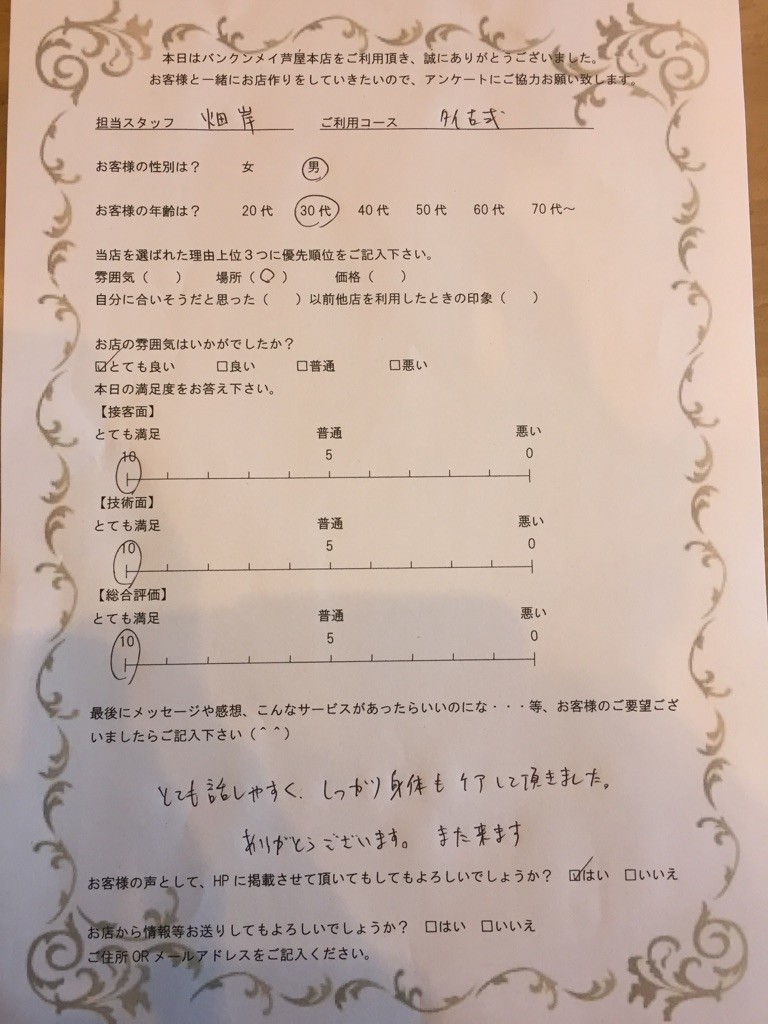 本日はバンクンメイ芦屋本店をご利用頂き、誠にありがとうございました。
お客様と一緒にお店作りをしていきたいので、アンケートにご協力お願い致します。
担当スタッフ 畑岸 ご利用コース タイ古式
お客様の性別は? 女 男
お客様の年齢は? 20代 30代 40代 50代 60代 70代~
当店を選ばれた理由上位3つに優先順位をご記入下さい。
雰囲気( ) 場所(○) 価格( )
自分に合いそうだと思った( )以前他店を利用したときの印象( )
お店の雰囲気はいかがでしたか?
☑とても良い □良い □普通 □悪い
本日の満足度をお答え下さい。
【接客面】
とても満足 普通 悪い
10 5 0
【技術面】
とても満足 普通 悪い
10 5 0
【総合評価】
とても満足 普通 悪い
10 5 0
最後にメッセージや感想、こんなサービスがあったらいいのにな・・・等、お客様のご要望ござ
いましたらご記入下さい(^^)
とても話しやすく、しっかり身体もケアして頂きました。
ありがとうございます。 また来ます
お客様の声として、HPに掲載させて頂いてもしてもよろしいでしょうか? ☑はい □いいえ
お店から情報等お送りしてもよろしいでしょうか? □はい □いいえ
ご住所ORメールアドレスをご記入ください。